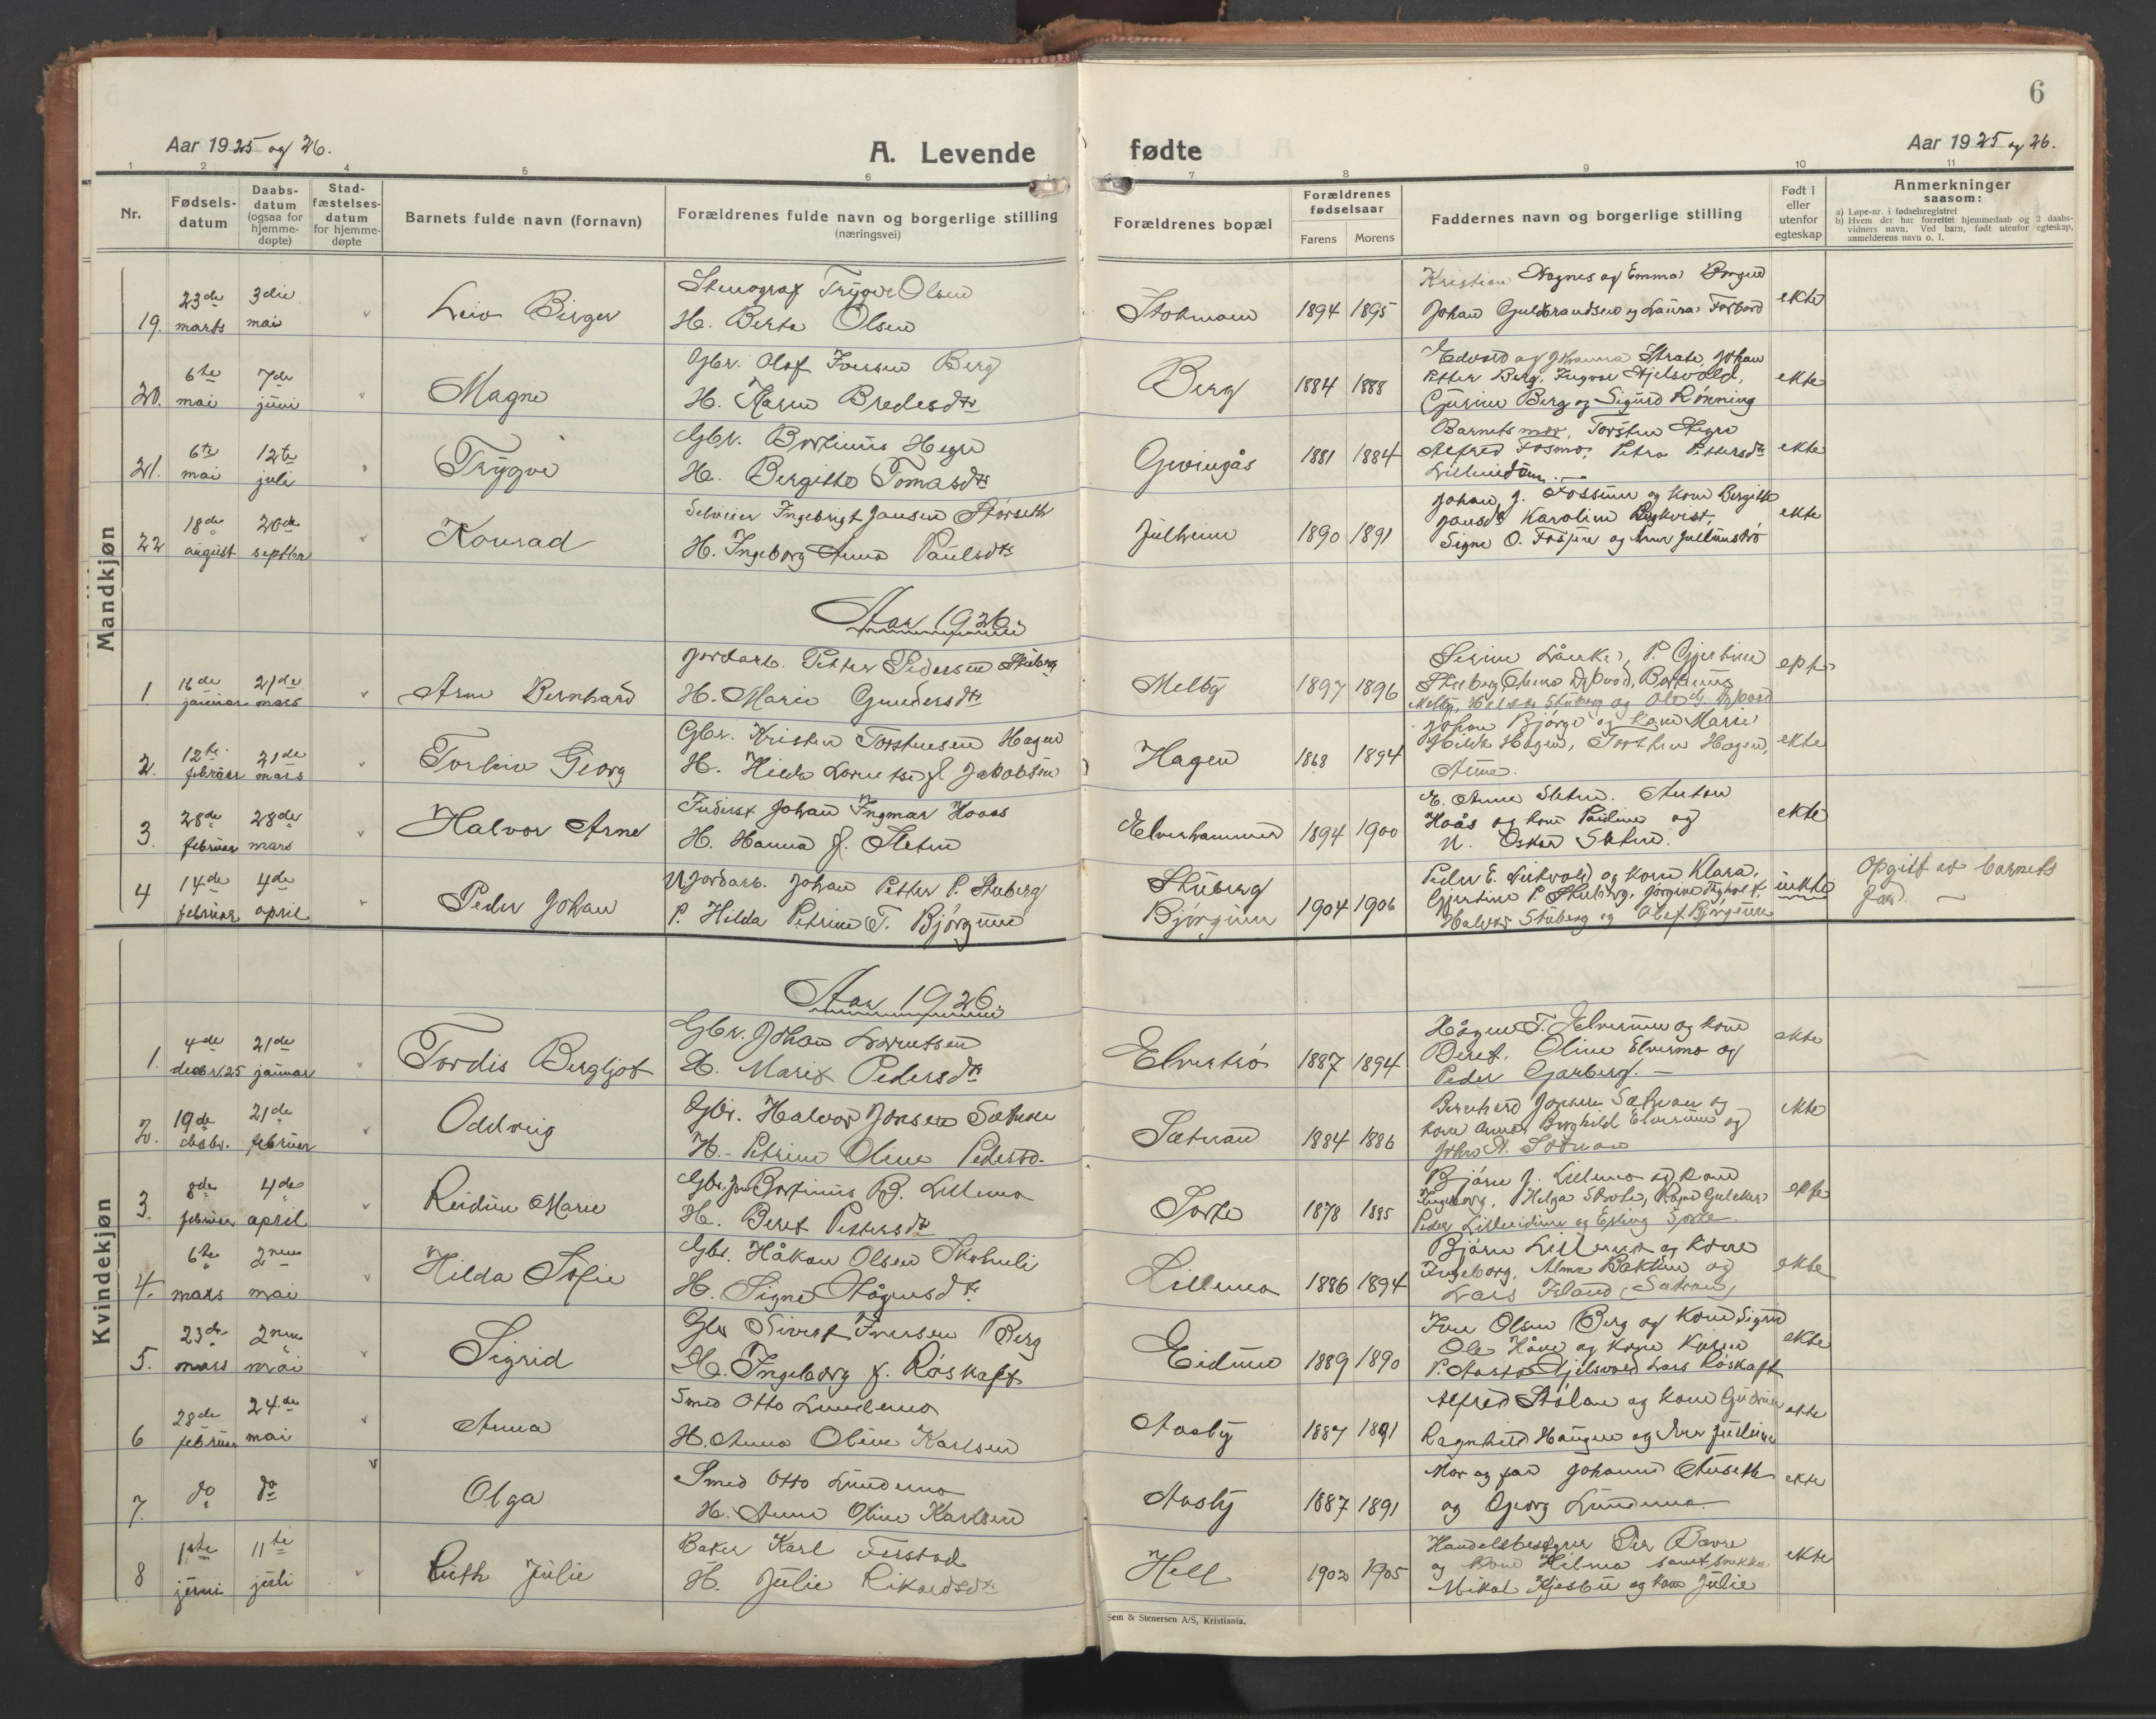 6
Aar 1925 og 26.
A. Levende
fødte
Aar 1925 og 26.
1 2 3 4 5 6 7 8 9 10 11
Nr.
Fødsels-
datum
Daabs-
datum
(ogsaa for
hjemme-
døpte)
Stad-
fæstelses-
datum
for hjemme-
døpte
Barnets fulde navn (fornavn)
Forældrenes fulde navn og borgerlige stilling
(næringsvei)
Forældrenes bopæl
Forældrenes
fødselsaar
Farens Morens
Faddernes navn og borgerlige stilling
Født i
eller
utenfor
egteskap
Anmerkninger
saasom:
a) Løpe-nr. i fødselsregistret
b) Hvem der har forrettet hjemmedaab og 2 daabs-
vidners navn. Ved barn, født utenfor egteskap,
anmelderens navn o. l.
Mandkjøn
19. 23de marts 3die mai Leiv Birger
Stenograf Trygve Olsen
H. Berta Olsen
Stokmoen 1894 1895
Kristian Hognes og Emma Borgud
Johan Guldbrandsen og Laura Forbord
ekte
20. 6te mai 7de juni Magne
Gbr. Olaf Iversen Berg
H. Karen Bredesdtr
Berg 1884 1888
Edvard og Johanna Strate, Johan
Petter Berg, Ingvar Hjelsvold,
Gjurine Berg og Sigurd Rønning
ekte
21. 6te mai 12te juli Trygve
Gbr. Bortinus Hegre
H. Bergitte Tomasdtr
Gevingås 1881 1884
Barnets mor, Torsten Hegre
Alfred Fosmo, Petra Pettersdtr
ekte
22 18de august 20de septbr Konrad
Selveier Ingebrigt Jansen Storseth
H. Ingeborg Anna Paulsdtr
Julheim 1890 1891
Johan J. Fossum og kone Bergitte
Jansdtr Karoline Bergkvist,
Signe O.
ekte
Aar 1926.
1 16de januar 21de mars Arne Bernhard
Jordarb. Petter Pedersen Stuberg
H. Marie Gundersdtr
Melby 1897 1896
Serine Lånke, P. Gjertine
Stuberg, Anna Dybvad, Bortinus
Melby, Halvor Stuberg og Ole Dybvad
ekte
2. 12te februar 21de mars Torfin Georg
Gbr. Kristen Torstensen Hagen
H. Hilda Lorentse f. Jakobsen
Hagen 1868 1894
Johan Bjørgo og kone Marie
Hilda Hagen, Torsten Hagen,
ekte
3. 28de februar 28de mars Halvor Arne
Inderst Johan Ingmar Hoaas
H. Hanna f. Sletne
Elverhammer 1894 1900
E. Anne Sletne. Anton
Hoås og kone Pauline og
U. Oskar Sletne.
ekte
4 14de februar 4de april Peder Johan
U Jordarb. Johan Petter P. Stuberg
P. Hilda Petrine T. Bjørgum
Stuberg
Bjørgum 1904 1906
Peder E. Leitvold og kone Klara,
Gjertine P. Stuberg, Jørgine Fughølt,
Halvor Stuberg og Olaf Bjørgum
uekte
Opgitt av barnets
far. —
Kvindekjøn
Aar 1926.
1. 4de decbr 25 21de januar Tordis Bergljot
Gbr. Johan Lorentsen
H. Marit Pedersdtr
Elvertrø 1887 1894
Hågen T. Elverum og kone
Beret, Oline Elvermo og
Peder Garberg. —
ekte
2. 19de decbr. 21de februar Oddveig
Gbr. Halvor Jonsen Sætnan
H. Petrine Oline Pedersd.
Sætnan 1884 1886
Bernhard Jonsen Sætnan og
kone Anna, Borghild Elverum og
John A. Sætnan
ekte
3. 8de februar 4de april Reidun Marie
Gbr. Jon Bortinus B. Lillemo
H. Beret Pettersdtr
Sorte 1878 1885
Bjørn J. Lillemo og kone
Ingeborg, Helga Strate,
Peder Lilleeidum og Esling Sorte
ekte
4. 6te mars 2nen mai Hilda Sofie
Gbr. Håkon Olsen
H. Signe Hågensdtr
Lillemo 1886 1894
Bjørn Lillemo og kone
Ingeborg, Alma Bakken og
Lars Feland, Sætnan
ekte
5. 23de mars 2nen mai Sigrid
Gbr Sivert Iversen Berg
H. Ingeborg f. Røskaft
Eidum 1889 1890
Iver Olsen Berg og kone Sigrid
Ole Håve og kone Karen
P. Aasta Hjelsvold Lars Røskaft
ekte
6 28de februar 24de mai Anna
Smed Otto Lundemo
H. Anna Oline Karlsen
Aasby 1887 1891
Alfred Stølan og kone Gudrun
Ragnhild Haugen og Iver Julseim
ekte
7. do do Olga
Smed Otto Lundemo
H. Anna Oline Karlsen
Aasby 1887 1891
Mor og far Johanna Auseth
og Georg Lundemo
ekte
8 1ste juni 11te juli Ruth Julie
Baker Karl Ferstad
H. Julie Rikardsdtr
Hell 1902 1905
Handelsbestyrer Per Bavre
og kone Hilma samt snekker
Mikal Kjesbu og kone Julie
ekte
Sem & Stenersen A/S, Kristiania.